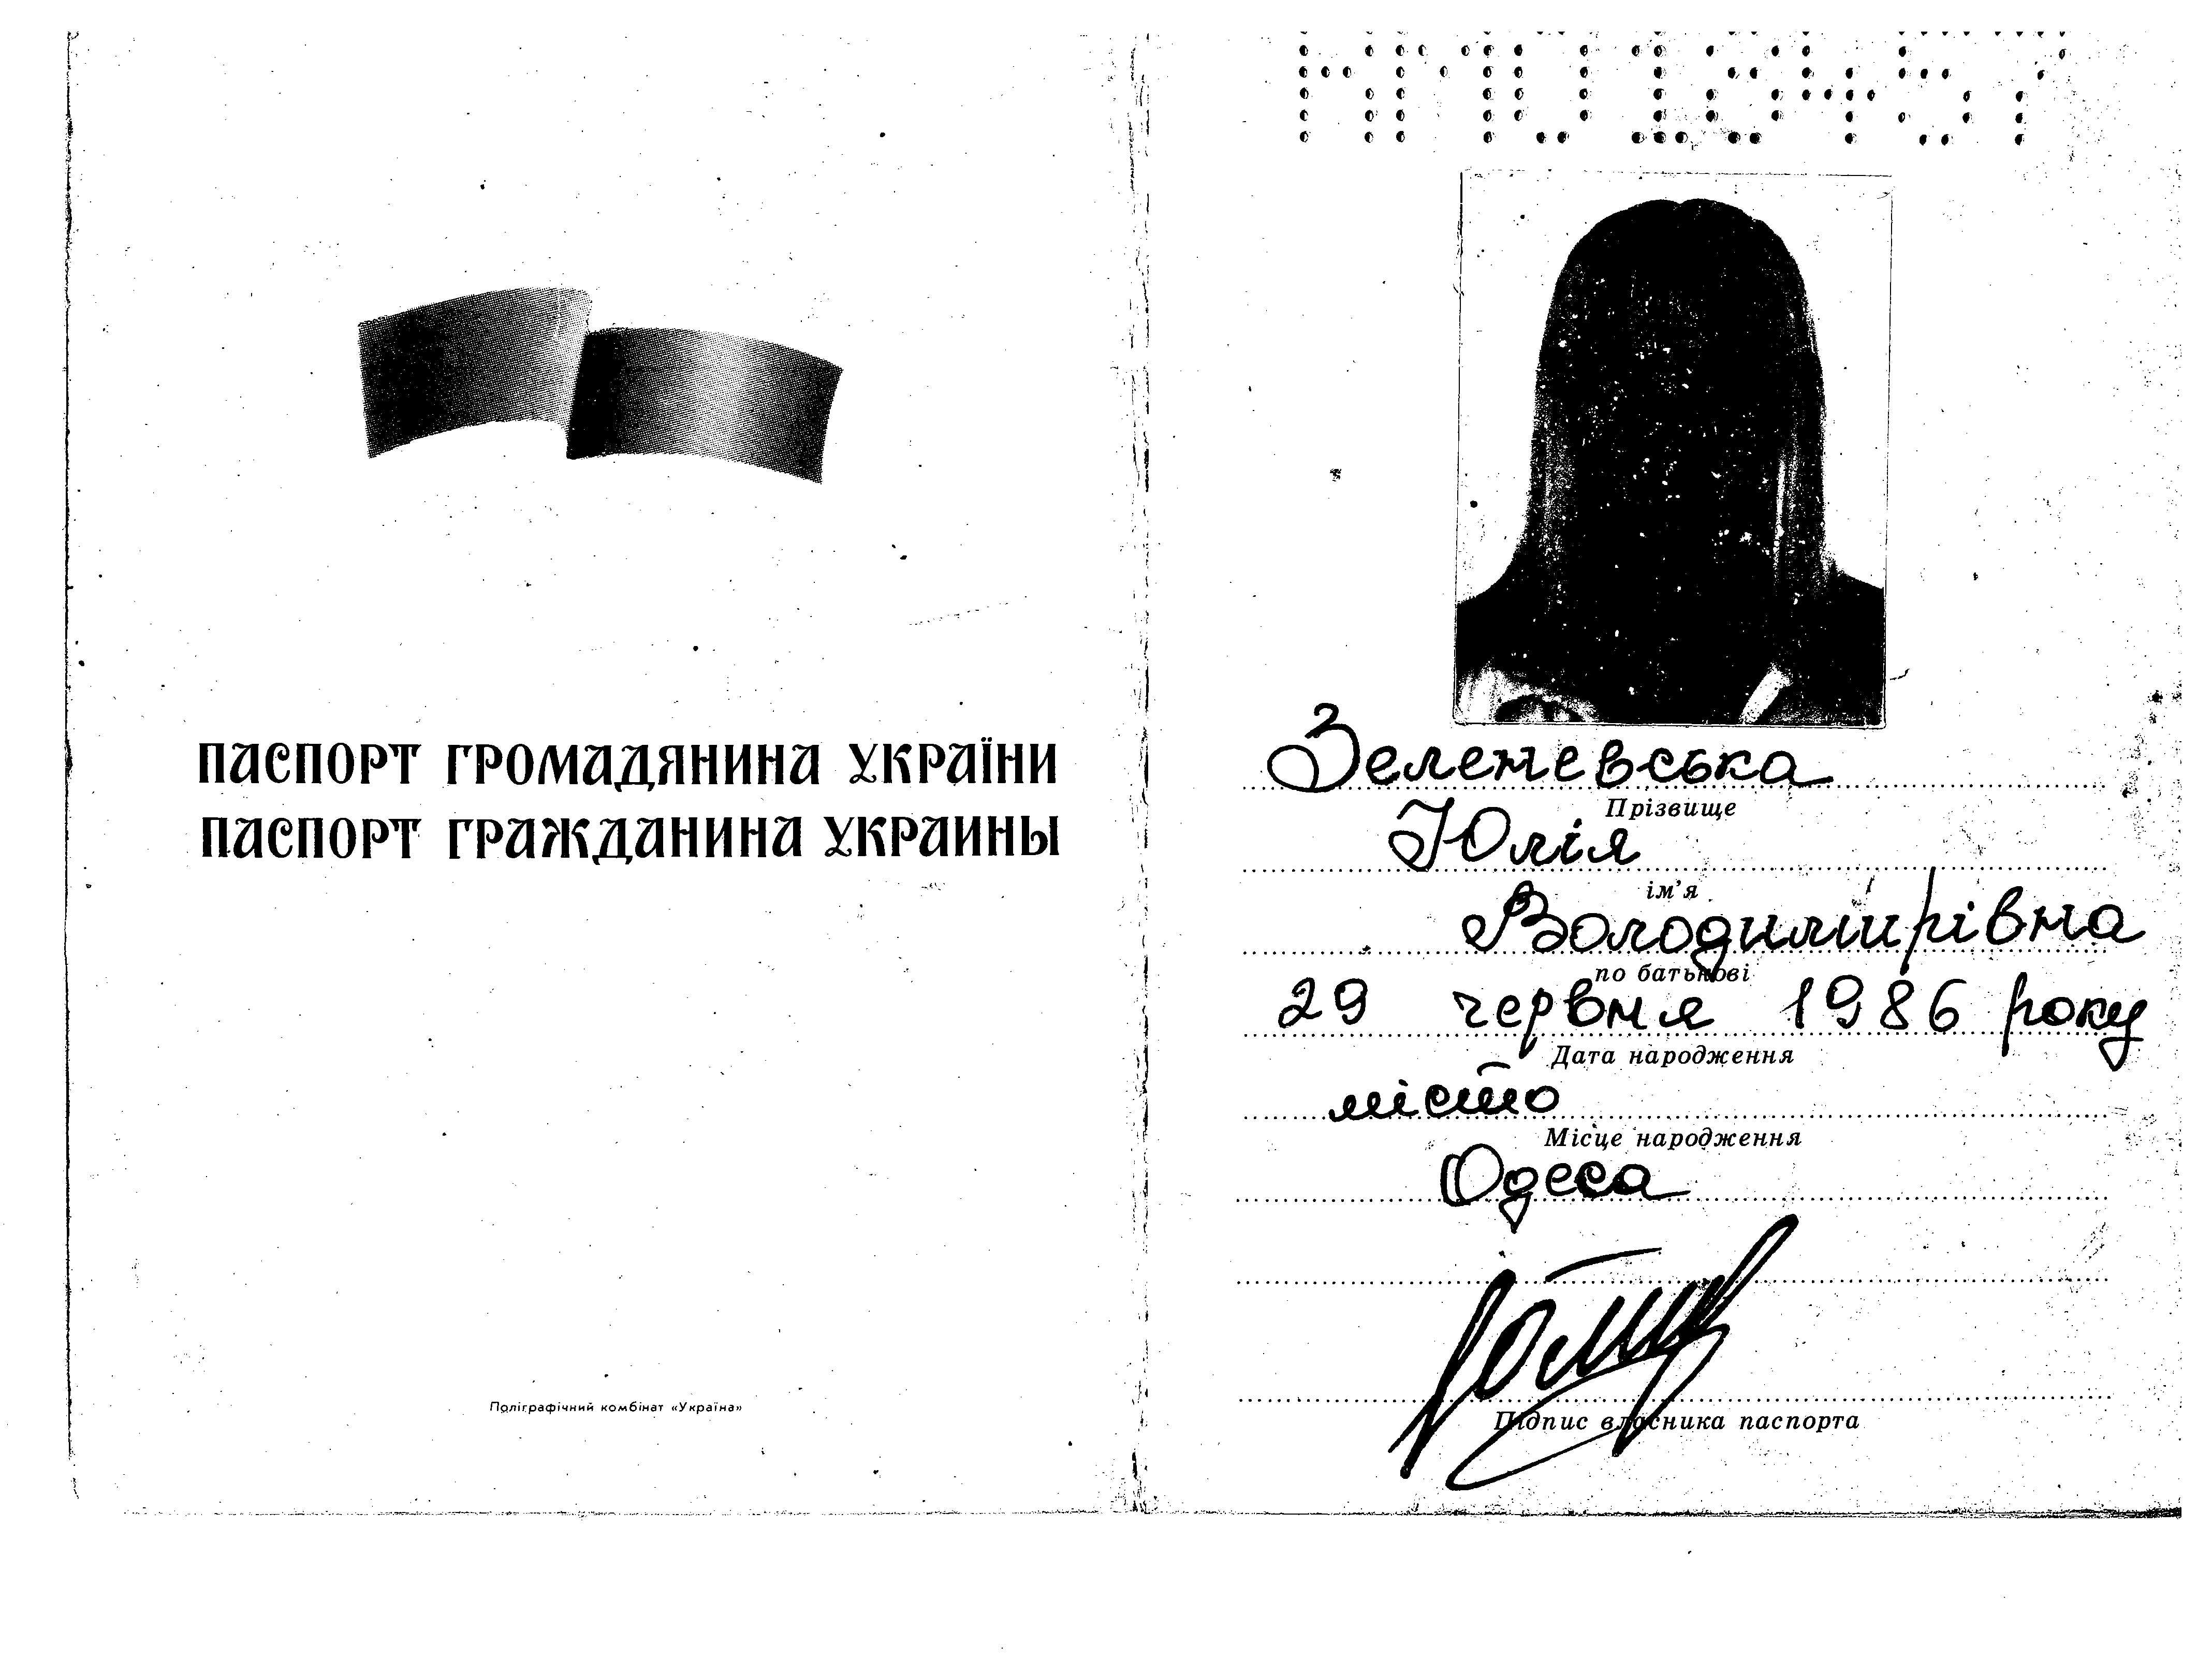 ПАСПОРТ ГРОМАДЯНИНА УКРАЇНИ
ПАСПОРТ ГРАЖДАНИНА УКРАИНЫ
Поліграфічний комбінат «Україна»
Зеленевська
Прізвище
Юлія
ім'я
Володимирівна
по батькові
29 червня 1986 року
Дата народження
місто
Місце народження
Одеса
Підпис власника паспорта